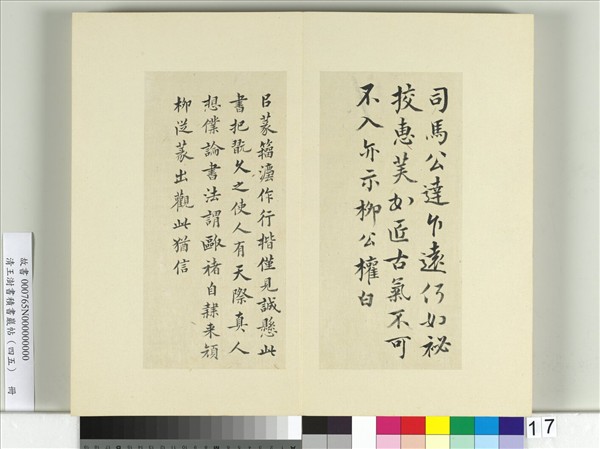 司馬公達所遠仍如祕
挍惠芙如匠古氣不可
不入亦示柳公權白
㠯篆籀灋作行楷僅見誠懸此
書把翫久之使人有天際真人
想僕論書法謂歐褚自隸來顏
柳從篆出觀此猶信
故書 000765N000000000
清王澍書積書巖帖(四五) 冊
17